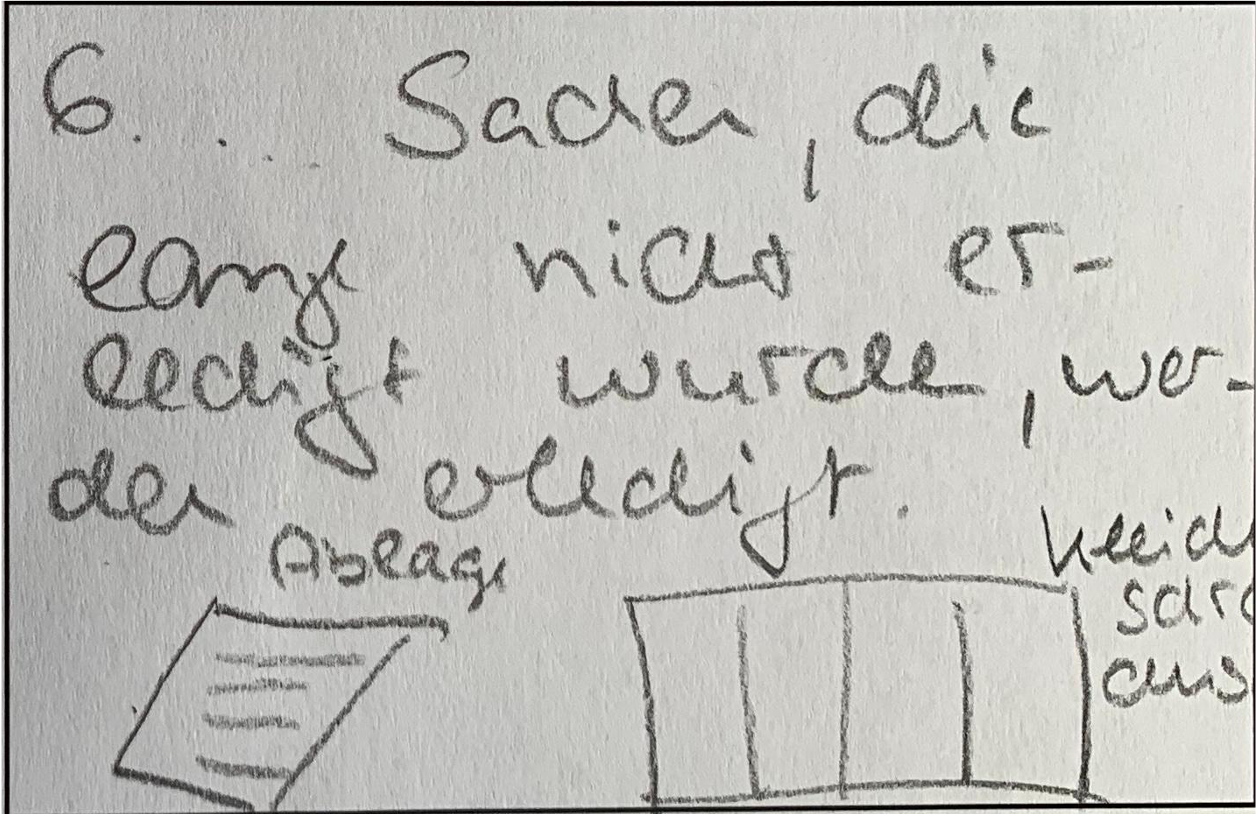 6. ... Sachen, die
lange nicht er-
ledigt wurden, wer-
den erledigt.
Ablage